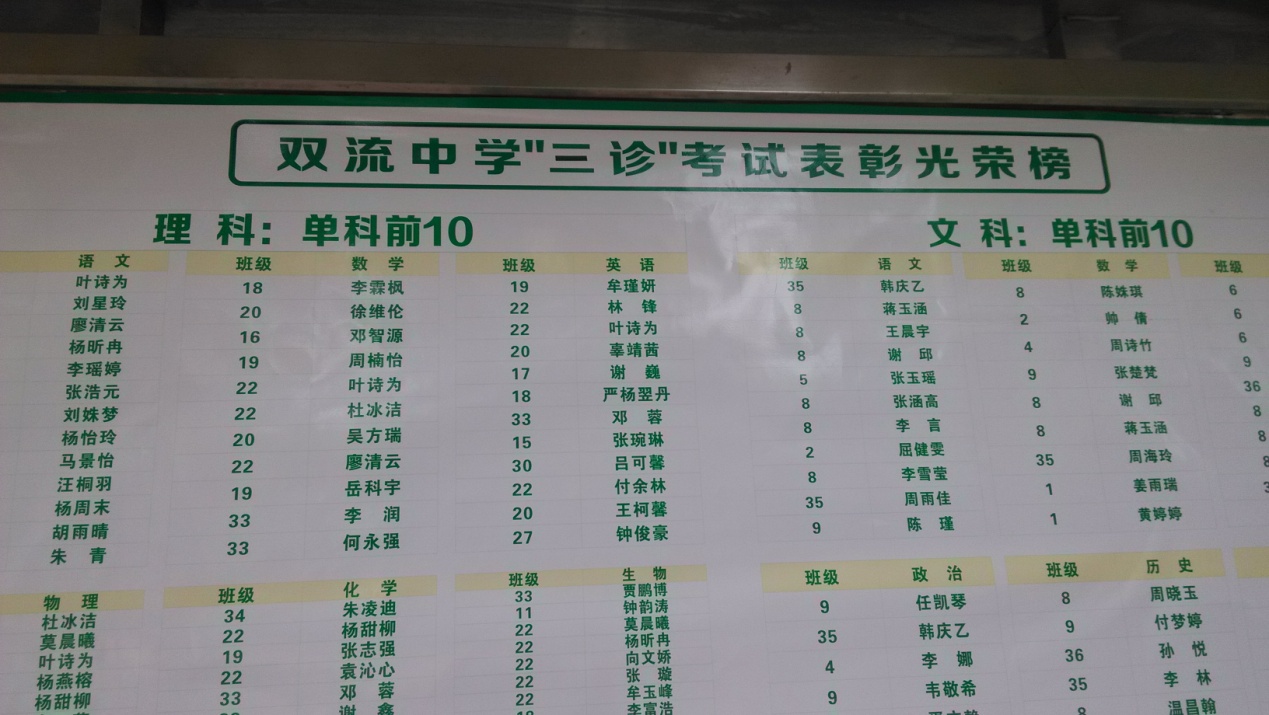 双流中学"三诊"考试表彰光荣榜
理科：单科前10
语文 班级 数学 班级 英语
叶诗为 18 李霖枫 19 牟瑾妍
刘星玲 20 徐维伦 22 林锋
廖清云 16 邓智源 22 叶诗为
杨昕冉 19 周楠怡 20 辜靖茜
李瑶婷 22 叶诗为 17 谢巍
张浩元 22 杜冰洁 18 严杨翌丹
刘姝梦 20 吴方瑞 33 邓蓉
杨怡玲 22 廖清云 15 张琬琳
马景怡 19 岳科宇 30 吕可馨
汪桐羽 33 李润 22 付余林
杨周末 33 何永强 20 王柯馨
胡雨晴 27 钟俊豪
朱青
物理 班级 化学 班级 生物
杜冰洁 34 朱凌迪 33 贾鹏博
莫晨曦 22 杨甜柳 11 钟韵涛
叶诗为 19 张志强 22 莫晨曦
杨燕榕 22 袁沁心 22 杨昕冉
杨甜柳 33 邓蓉 22 向文娇
谢鑫 22 张璇
22 牟玉峰
李富浩
文科：单科前10
班级 语文 班级 数学 班级
35 韩庆乙 8 陈姝琪 6
8 蒋玉涵 2 帅倩 6
8 王晨宇 4 周诗竹 6
8 谢邱 9 张楚梵 9
5 张玉瑶 8 谢邱 36
8 张涵高 8 蒋玉涵 8
8 李言 35 周海玲 8
2 屈健雯 1 姜雨瑞
8 李雪莹 1 黄婷婷
35 周雨佳
9 陈瑾
班级 政治 班级 历史
9 任凯琴 8 周晓玉
35 韩庆乙 9 付梦婷
4 李娜 36 孙悦
9 韦敬希 35 李林
8 温昌翰